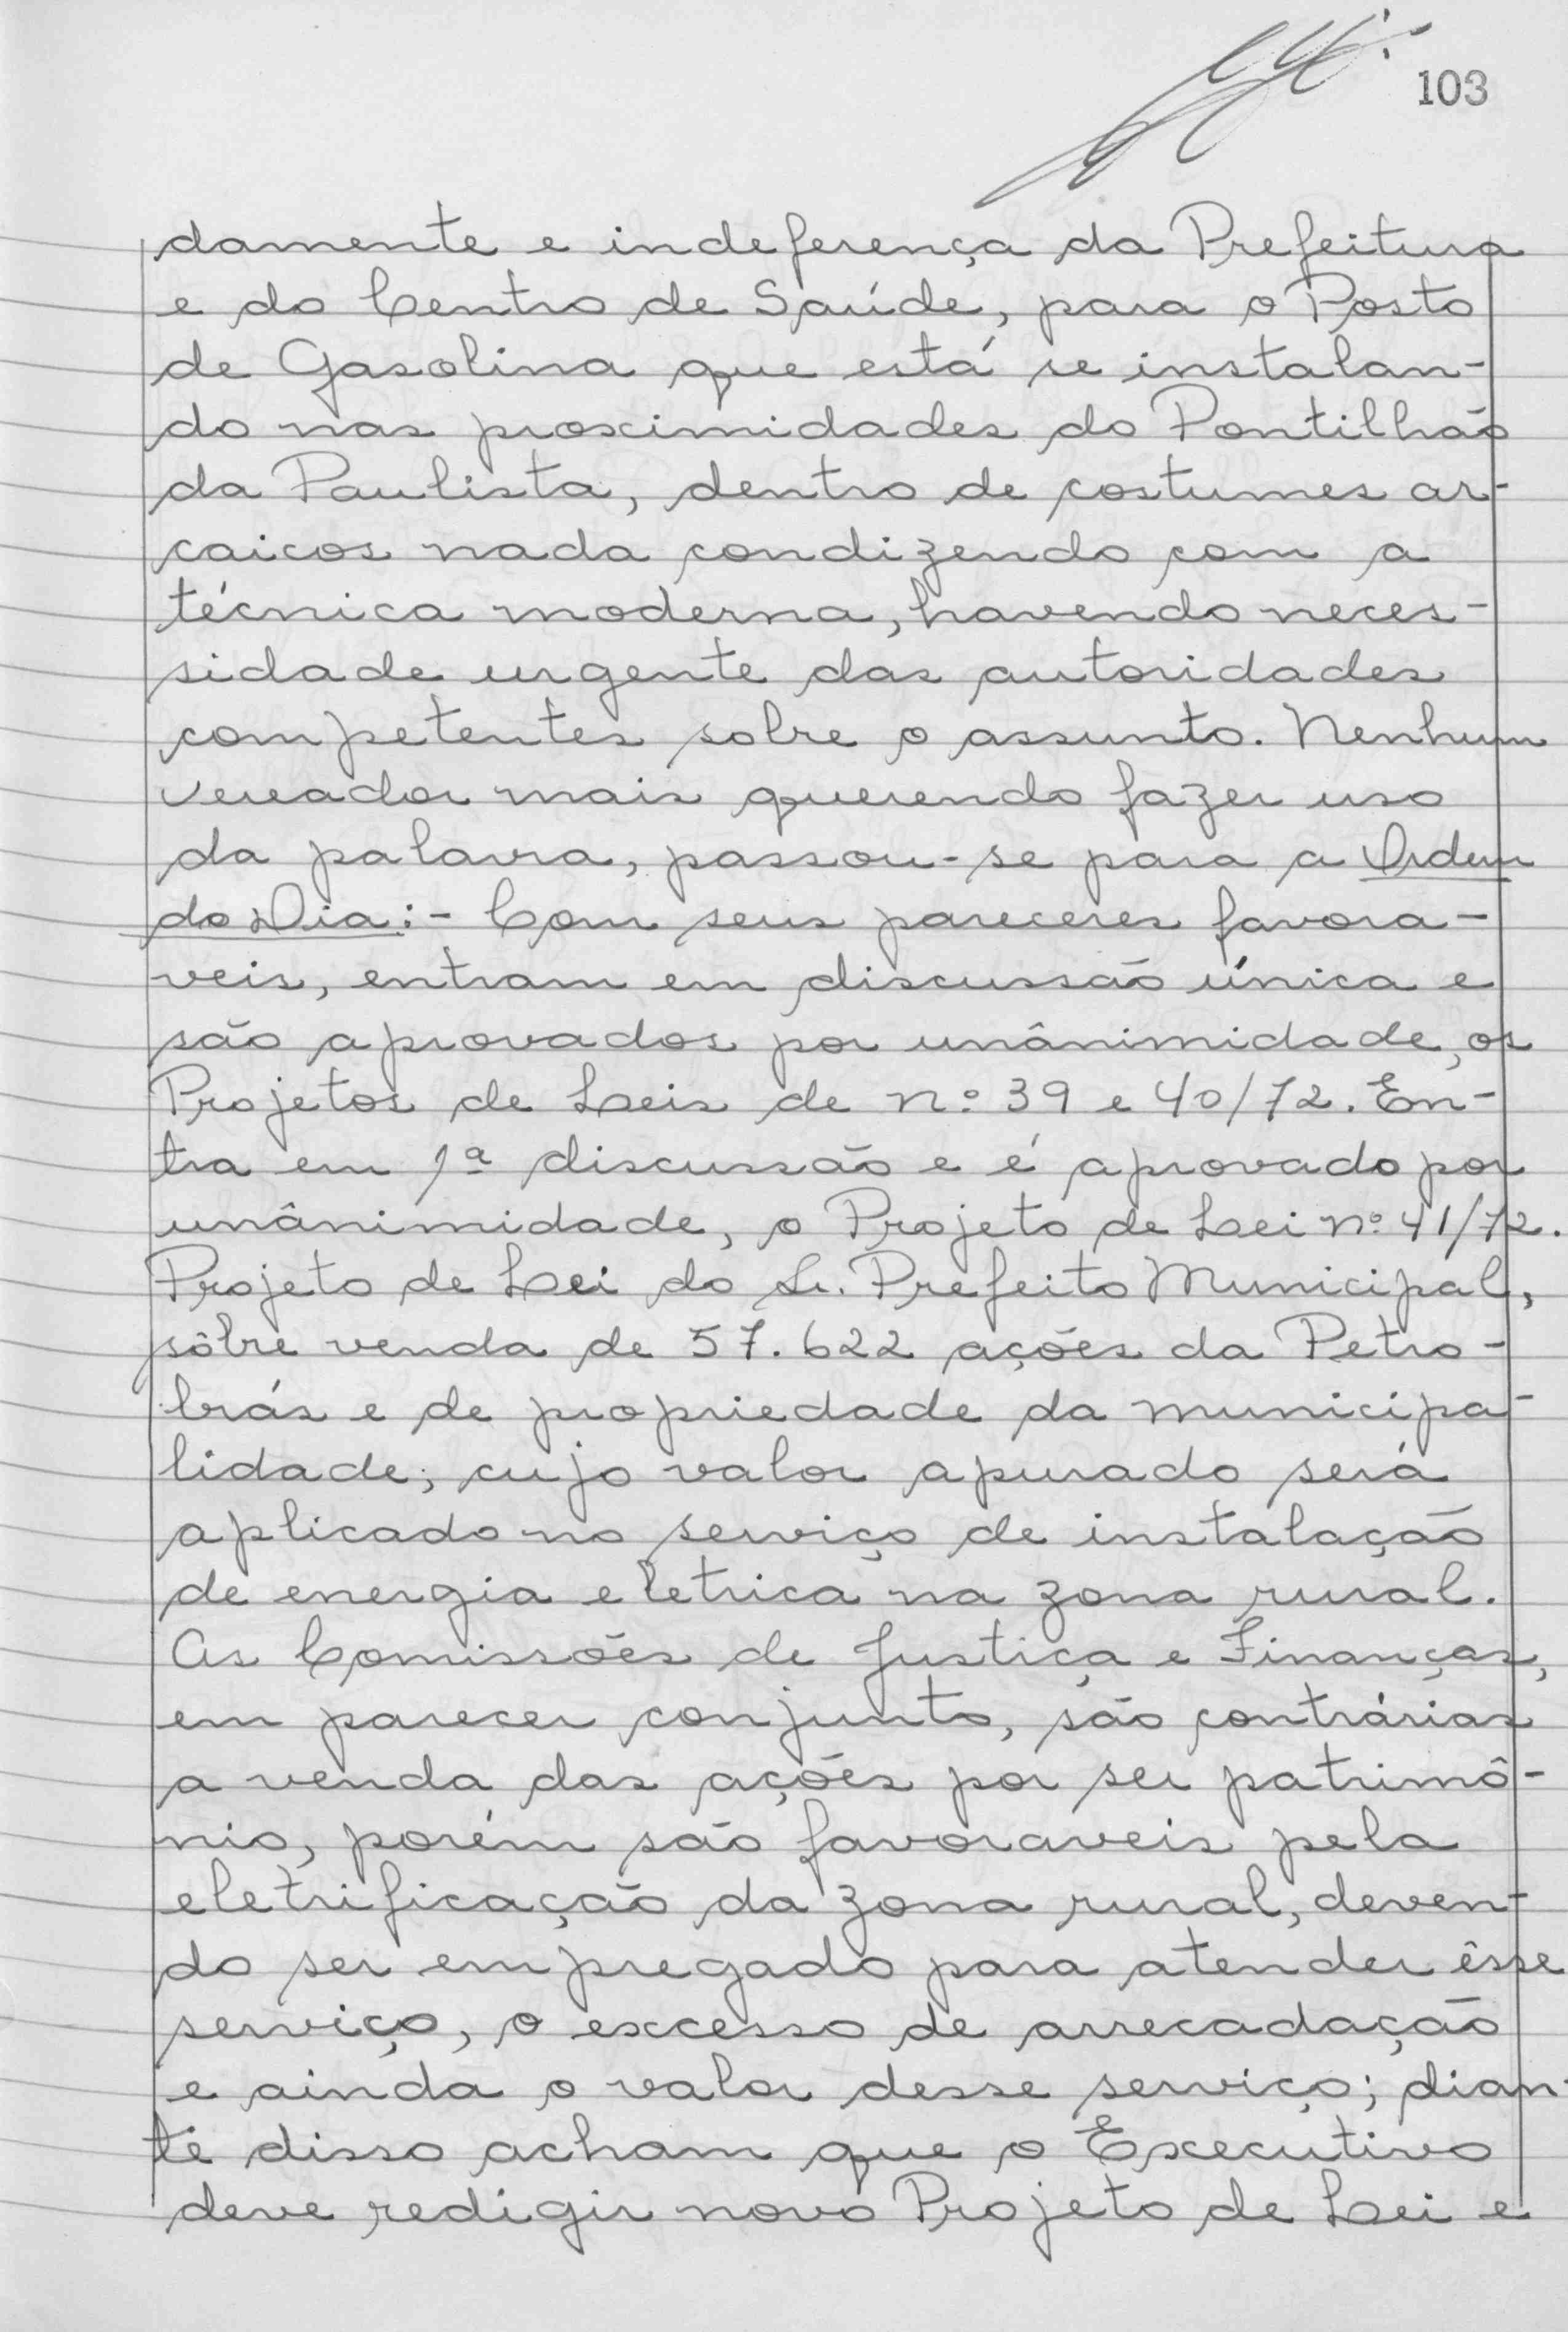 103
damente e indeferença da Prefeitura
e do Centro de Saúde, para o Posto
de Gasolina que está se instalan-
do nas proximidades do Pontilhão
da Paulista, dentro de costumes ar-
caicos nada condizendo com a
técnica moderna, havendo neces-
sidade urgente das autoridades
competentes sobre o assunto. Nenhum
vereador mais querendo fazer uso
da palavra, passou-se para a Ordem
do Dia:- Com seus pareceres favora-
veis, entram em discussão única e
são aprovados por unânimidade, os
Projetos de Leis de nº 39 e 40/72. En-
tra em 1ª discussão e é aprovado por
unânimidade, o Projeto de Lei nº 41/72.
Projeto de Lei do Sr. Prefeito Municipal,
sôbre venda de 57.622 ações da Petro-
brás e de propriedade da municipa-
lidade; cujo valor apurado será
aplicado no serviço de instalação
de energia eletrica na zona rural.
As Comissões de Justiça e Finanças,
em parecer conjunto, são contrárias
a venda das ações por ser patrimô-
nio, porém são favoraveis pela
eletrificação da zona rural, deven-
do ser empregado para atender êsse
serviço, o excesso de arrecadação
e ainda o valor desse serviço; dian-
te disso acham que o Executivo
deve redigir novo Projeto de Lei e